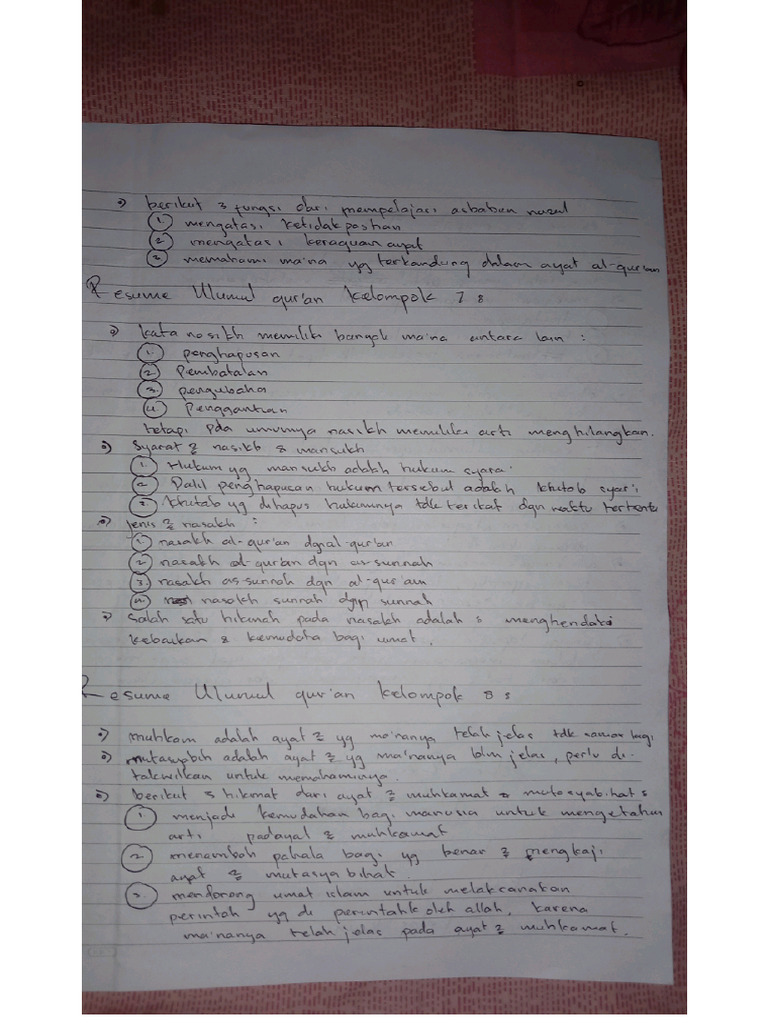 •) berikut 3 fungsi dari mempelajari asbabun nuzul
1. mengatasi ketidakpastian
2. mengatasi keraguan ayat
3. memahami ma'na yg terkandung dhlam ayat al-qur'an
Resume Ulumul qur'an Kelompok 7 :
•) kata nasikh memiliki banyak ma'na antara lain :
1. penghapusan
2. Pembatalan
3. pengubaha
4. Penggantian
tetapi pda umumnya nasikh memiliki arti menghilangkan.
•) Syarat 2 nasikh & mansukh
1. Hukum yg mansukh adalah hukum syara'
2. Dalil penghapusan hukum tersebut adalah khitob syar'i
3. khitab yg dihapus hukumnya tdk terikat dgn waktu tertentu
•) jenis 2 nasakh :
1. nasakh al-qur'an dgn al-qur'an
2. nasakh al-qur'an dgn as-sunnah
3. nasakh as-sunnah dgn al-qur'an
4. nasakh sunnah dgn sunnah
•) salah satu hikmah pada nasakh adalah : menghendaki
kebaikan & kemudaha bagi umat.
Resume Ulumul qur'an Kelompok 8 :
•) muhkam adalah ayat 2 yg ma'nanya telah jelas tdk samar lagi
•) mutasyabih adalah ayat 2 yg ma'nanya blm jelas, perlu di-
takwilkan untuk memahaminya.
•) berikut 3 hikmat dari ayat 2 muhkamat & mutasyabihat :
1. menjadi kemudahan bagi manusia untuk mengetahui
arti padayat 2 muhkamat
2. menambah pahala bagi yg benar 2 mengkaji
ayat 2 mutasyabihat.
3. mendorong umat islam untuk melaksanakan
perintah yg di perintahk oleh allah, karena
ma'nanya telah jelas pada ayat 2 muhkamat.